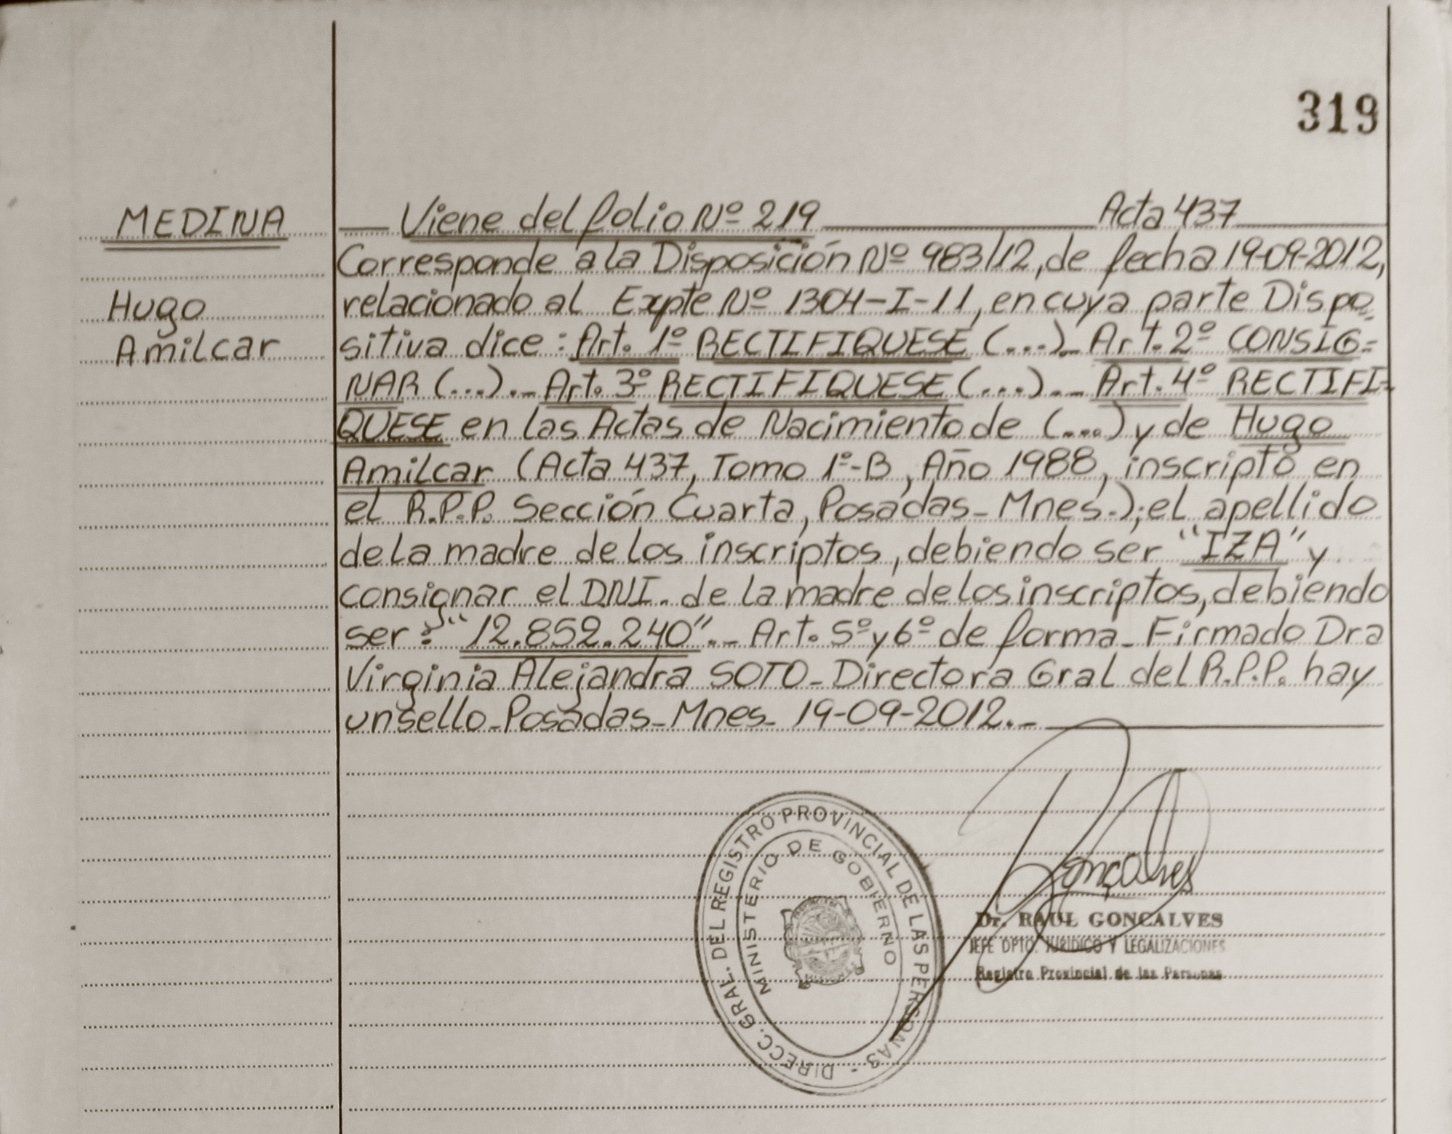 319
MEDINA
Hugo
Amilcar
Viene del folio Nº 219 Acta 437
Corresponde a la Disposición Nº 983/12, de fecha 19-09-2012,
relacionado al Expte Nº 1304-I-11, en cuya parte Dispo-
sitiva dice: Art. 1º RECTIFIQUESE (...)_ Art. 2º CONSIG-
NAR (...)._ Art. 3º RECTIFIQUESE (...)._ Art. 4º RECTIFI-
QUESE en las Actas de Nacimiento de (...) y de Hugo
Amilcar (Acta 437, Tomo 1º-B, Año 1988, inscripto en
el R.P.P. Sección Cuarta, Posadas_ Mnes.); el apellido
de la madre de los inscriptos, debiendo ser "IZA" y
consignar el DNI. de la madre de los inscriptos, debiendo
ser: "12.852.240"._ Art. 5º y 6º de forma_ Firmado Dra
Virginia Alejandra SOTO_ Directora Gral del R.P.P. hay
un sello_ Posadas_ Mnes_ 19-09-2012._
DIRECC. GRAL. DEL REGISTRO PROVINCIAL DE LAS PERSONAS -
MINISTERIO DE GOBIERNO
Gonçalves
Dr. RAUL GONCALVES
JEFE DPTO. JURIDICO Y LEGALIZACIONES
Registro Provincial de las Personas